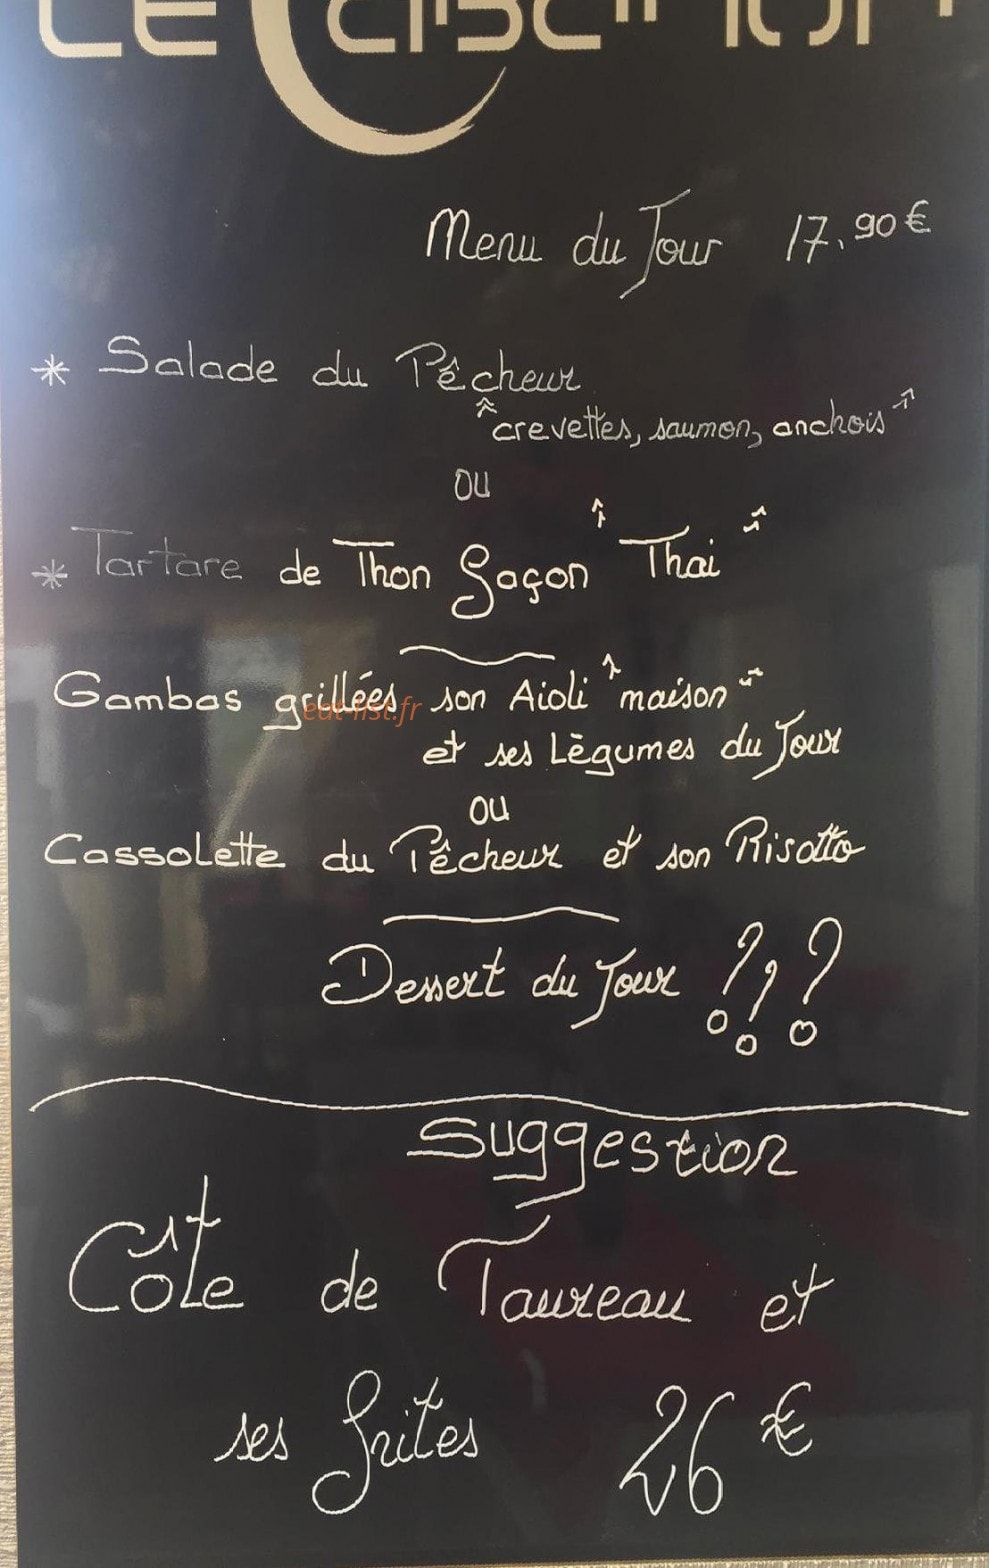 LE CABANON
Menu du Jour 17,90€
* Salade du Pêcheur
"crevettes, saumon, anchois"
ou
* Tartare de Thon façon "Thai"
Gambas grillées son Aioli "maison"
eat-list.fr
et ses Lègumes du Jour
ou
Cassolette du Pêcheur et son Risotto
Dessert du Jour ???
Suggestion
Côte de Taureau et
ses frites 26 €